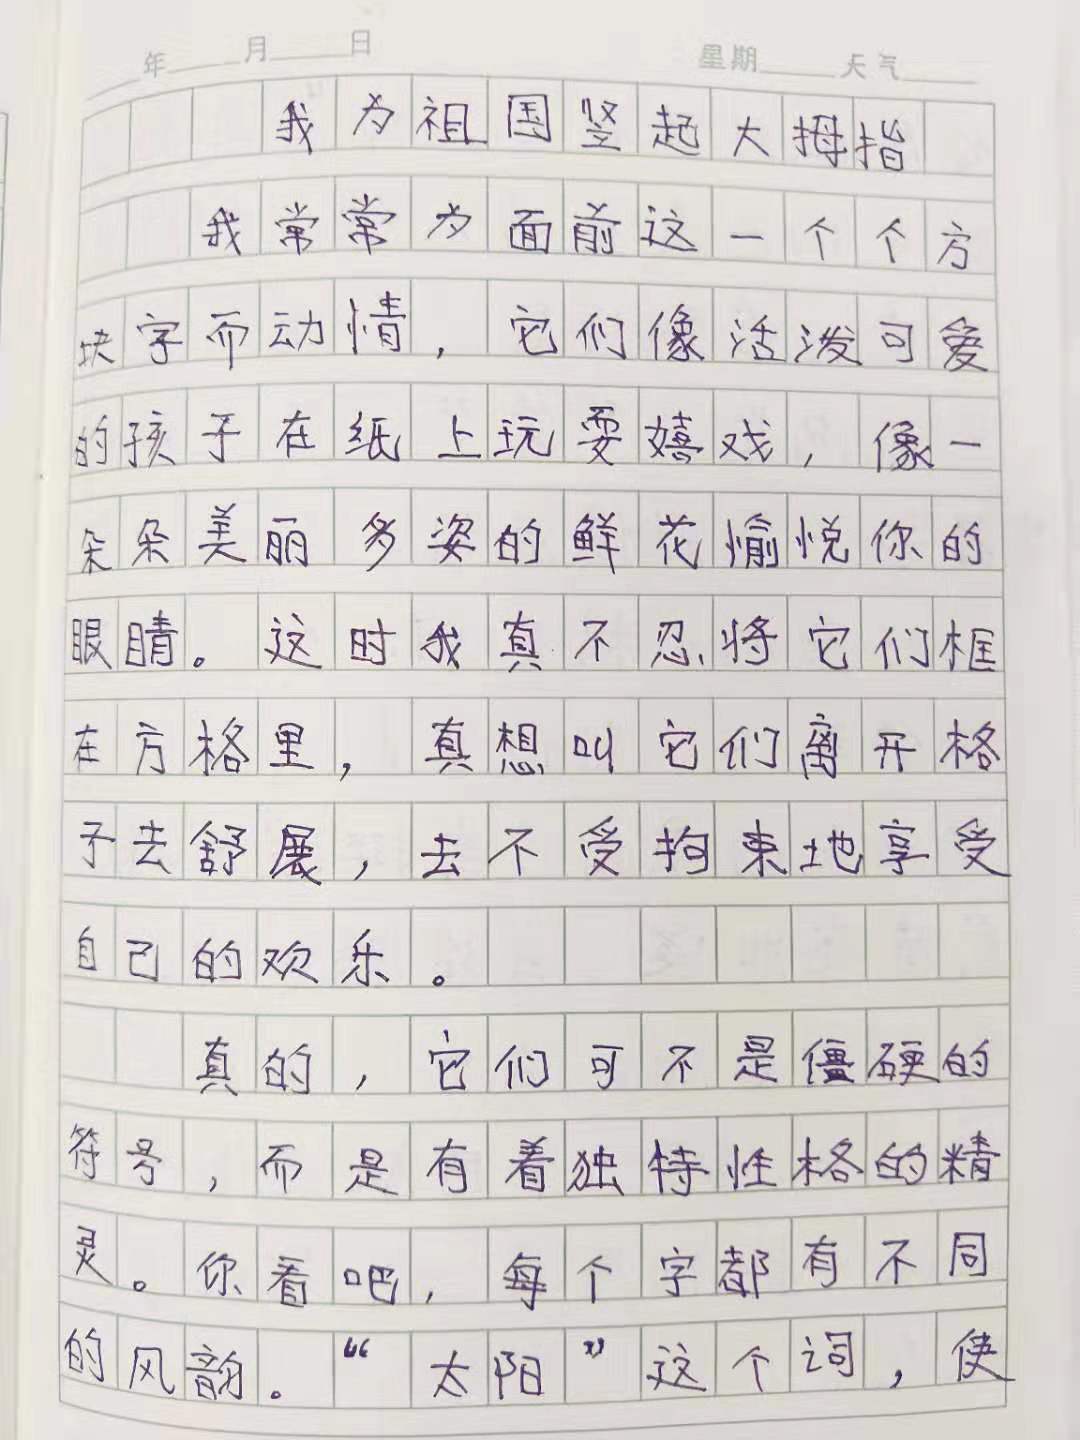 年 月 日 星期 天气
我为祖国竖起大拇指
我常常为面前这一个个方
块字而动情，它们像活泼可爱
的孩子在纸上玩耍嬉戏，像一
朵朵美丽多姿的鲜花愉悦你的
眼睛。这时我真不忍将它们框
在方格里，真想叫它们离开格
子去舒展，去不受拘束地享受
自己的欢乐。
真的，它们可不是僵硬的
符号，而是有着独特性格的精
灵。你看吧，每个字都有不同
的风韵。“太阳”这个词，使